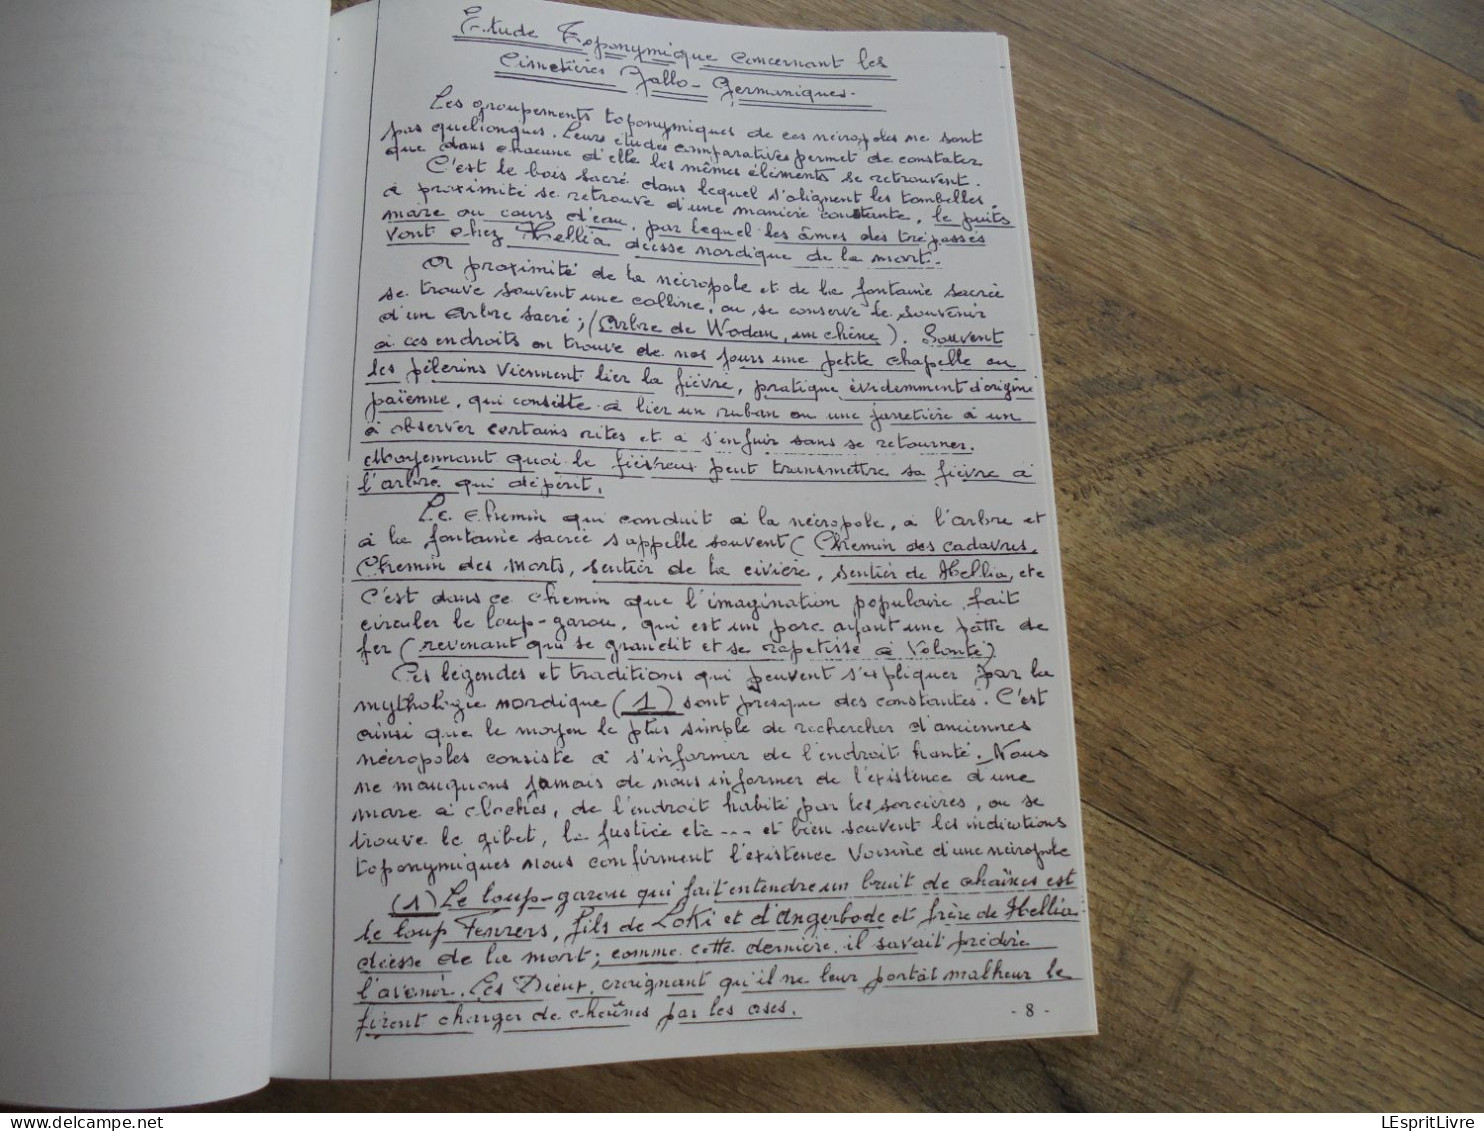 Etude Toponymique Concernant les
Cimetières Gallo-Germaniques.
Les groupements toponymiques de ces nécropoles ne sont
pas quelconques. Leurs études comparatives permet de constater
que dans chacune d'elle les mêmes éléments se retrouvent.
C'est le bois sacré dans lequel s'alignent les tombelles.
à proximité se retrouve d'une manière constante, le puits
mare ou cours d'eau, par lequel les âmes des trépassés
vont chez Hellia déesse nordique de la mort.
A proximité de la nécropole et de la fontaine sacrée
se trouve souvent une colline, ou se conserve le souvenir
d'un Arbre sacré; (Arbre de Wodan, un chêne). Souvent
à ces endroits on trouve de nos jours une petite chapelle ou
les pélerins viennent lier la fièvre, pratique évidemment d'origine
païenne, qui consiste à lier un ruban ou une jarretière à un
à observer certains rites et à s'enfuir sans se retourner.
Moyennant quoi le fiévreux peut transmettre sa fièvre à
l'arbre qui dépérit.
Le chemin qui conduit à la nécropole, à l'arbre et
à la fontaine sacrée s'appelle souvent (Chemin des cadavres,
Chemin des morts, sentier de la civière, sentier de Hellia, etc
C'est dans ce chemin que l'imagination populaire fait
circuler le loup-garou, qui est un porc ayant une patte de
fer (revenant qui se grandit et se rapetisse à volonté)
Ces légendes et traditions qui peuvent s'expliquer par la
mythologie nordique (1) sont presque des constantes. C'est
ainsi que le moyen le plus simple de rechercher d'anciennes
nécropoles consiste à s'informer de l'endroit hanté. Nous
ne manquons jamais de nous informer de l'existence d'une
mare à cloches, de l'endroit habité par les sorcières, ou se
trouve le gibet, la justice etc --- et bien souvent les indications
toponymiques nous confirment l'existence voisine d'une nécropole
(1) Le loup-garou qui fait entendre un bruit de chaînes est
le loup Fenrers, fils de Loki et d'Angerbode et frère de Hellia
déesse de la mort; comme cette dernière, il savait prédire
l'avenir. Les Dieux, craignant qu'il ne leur portât malheur le
firent charger de chaînes par les ases.
- 8 -
LEspritLivre